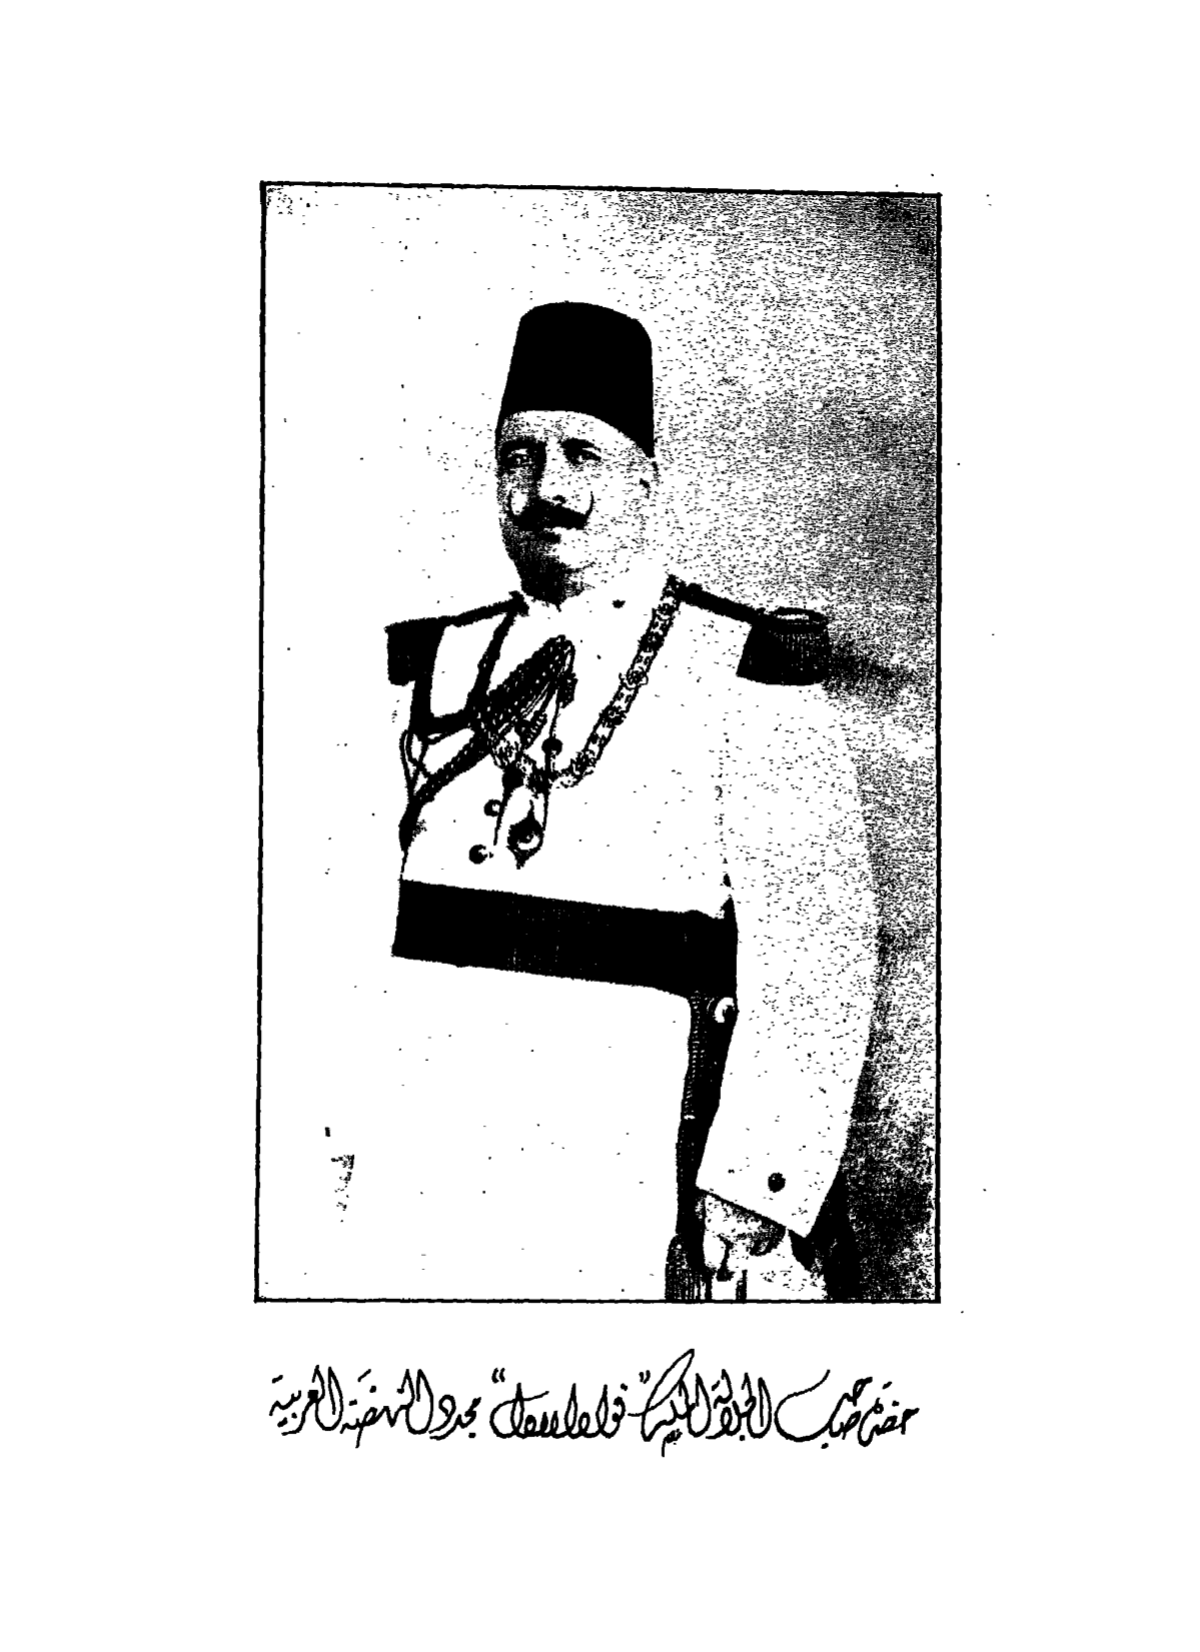 حضرة صاحب الجلالة الملك "فؤاد الاول" مجدد النهضة العربية